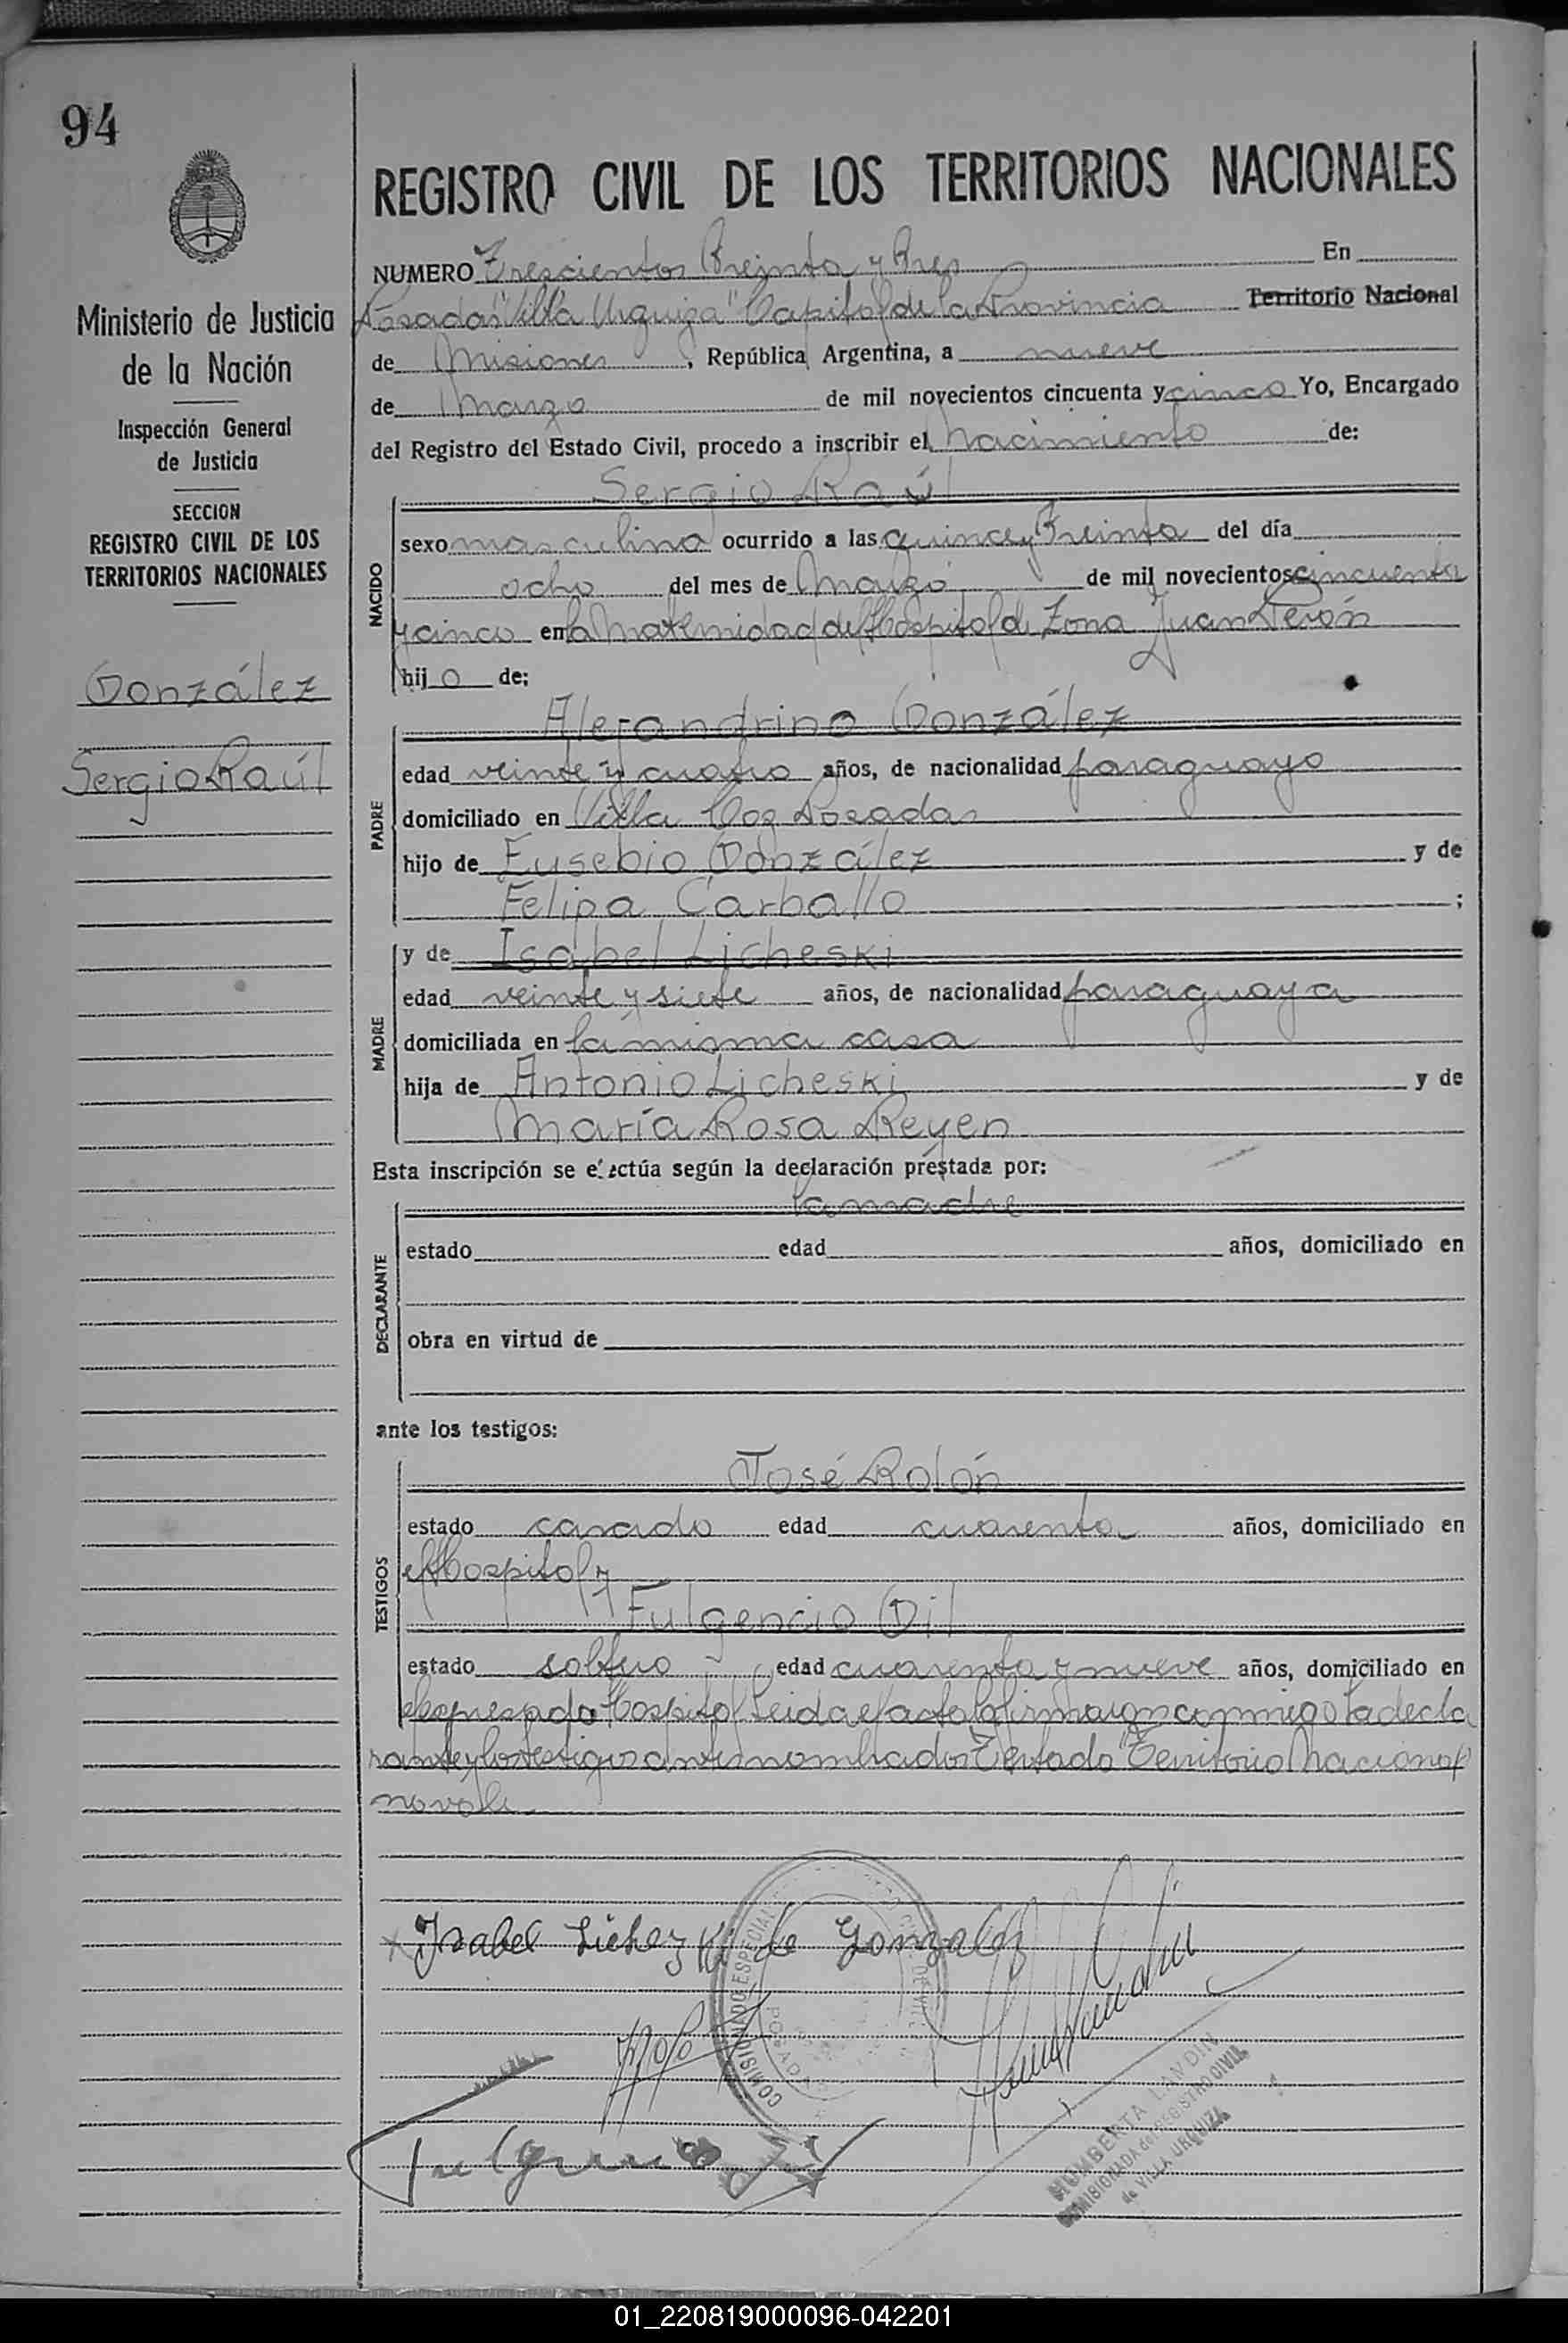 94
Ministerio de Justicia
de la Nación
Inspección General
de Justicia
SECCION
REGISTRO CIVIL DE LOS
TERRITORIOS NACIONALES
González
Sergio Raúl
REGISTRO CIVIL DE LOS TERRITORIOS NACIONALES
NUMERO Trescientos treinta y tres En
Posadas "Villa Urquiza" Capital de la Provincia Territorio Nacional
de Misiones, República Argentina, a nueve
de marzo de mil novecientos cincuenta y cinco Yo, Encargado
del Registro del Estado Civil, procedo a inscribir el nacimiento de:
Sergio Raúl
NACIDO
sexo masculino ocurrido a las quince y treinta del día
ocho del mes de marzo de mil novecientos cincuenta
y cinco en la maternidad del Hospital de Zona Juan Perón
hijo de;
PADRE
Alejandrino González
edad veinte y cuatro años, de nacionalidad paraguayo
domiciliado en Villa Coz Posadas
hijo de Eusebio González y de
Felipa Carballo ;
MADRE
y de Isabel Licheski
edad veinte y siete años, de nacionalidad paraguaya
domiciliada en la misma casa
hija de Antonio Licheski y de
María Rosa Reyen
Esta inscripción se efectúa según la declaración prestada por:
DECLARANTE
la madre
estado edad años, domiciliado en
obra en virtud de
ante los testigos:
TESTIGOS
José Rolón
estado casado edad cuarenta años, domiciliado en
el Hospital y
Fulgencio Gil
estado soltero edad cuarenta y nueve años, domiciliado en
el expresado Hospital Leida el acta la firmaron conmigo la decla
rante y los testigos antes nombrados Testado "Territorio Nacional"
no vale
Isabel Lichezki de Gonzalez
COMISIONADO ESPECIAL
POSADAS
Fulgencio Gil
HUMBERTA LANDIN
COMISIONADA del REGISTRO CIVIL
de VILLA URQUIZA
01_220819000096-042201